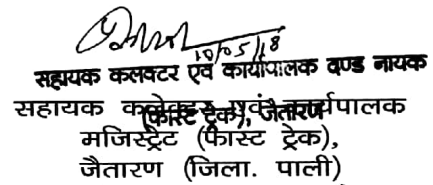 10/05/18
सहायक कलक्टर एवं कार्यपालक दण्ड नायक
(फास्ट ट्रेक), जैतारण
सहायक कलेक्टर एवं कार्यपालक
मजिस्ट्रेट (फास्ट ट्रेक),
जैतारण (जिला. पाली)